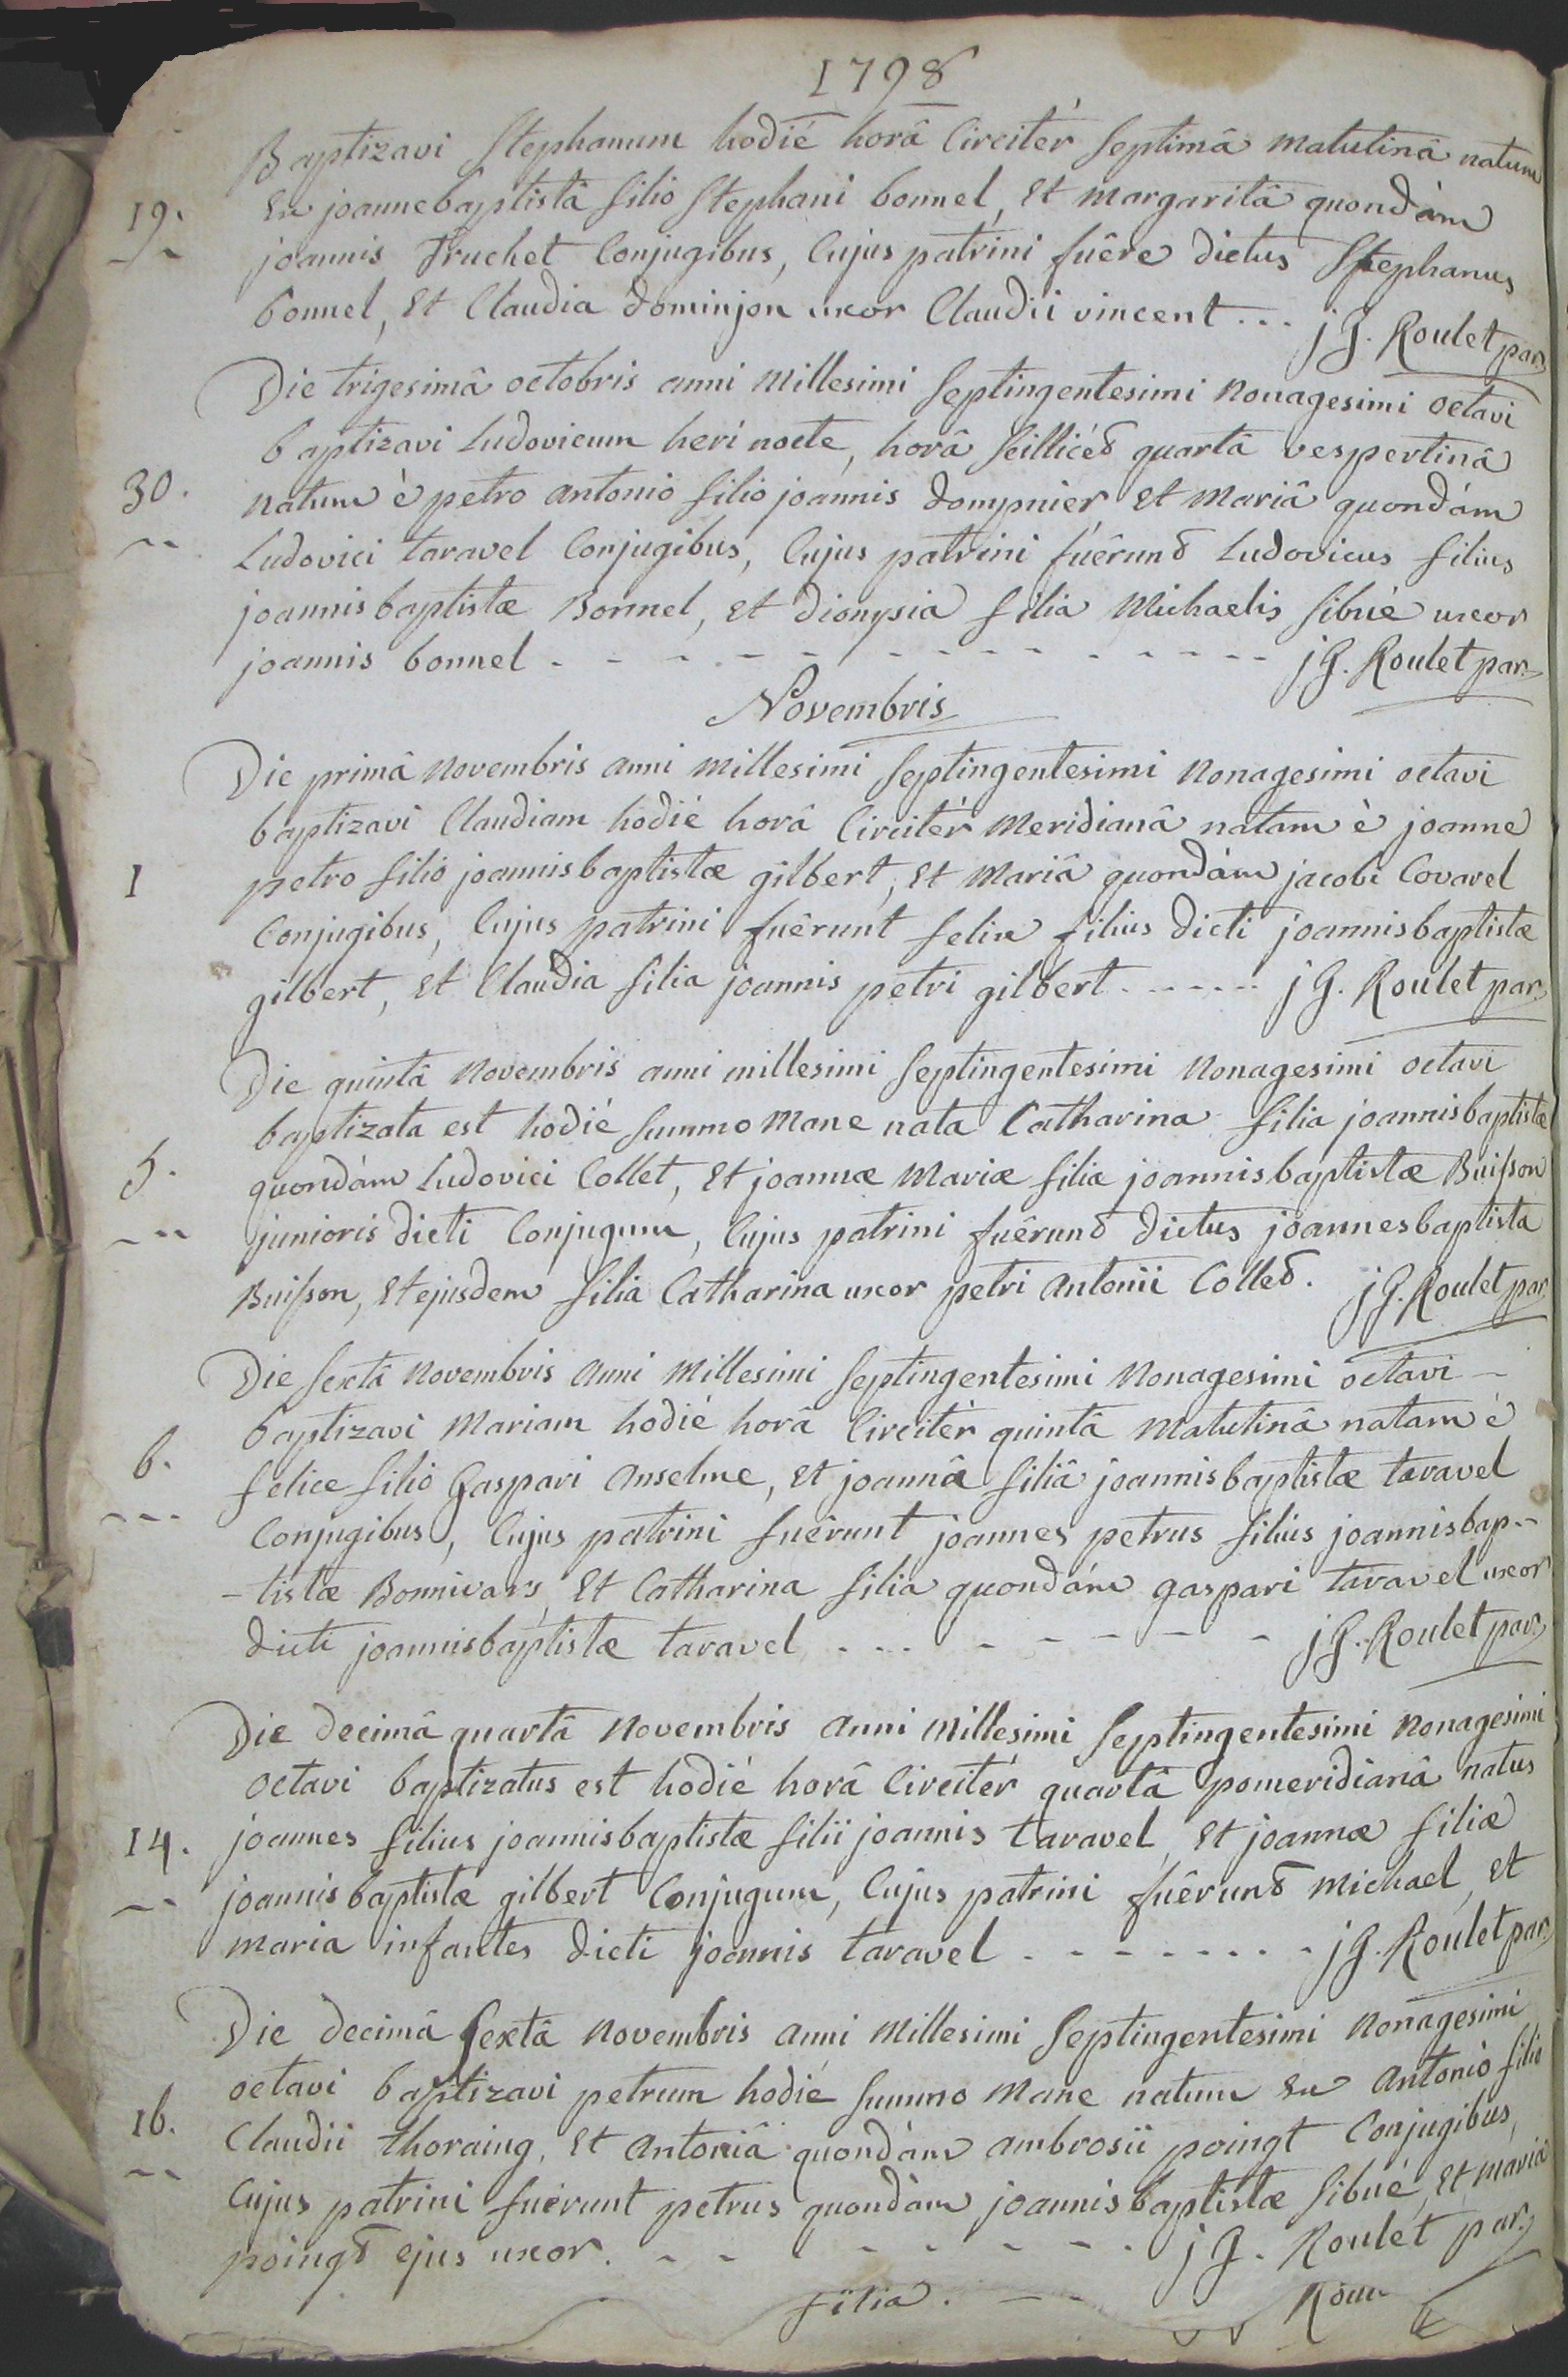 1798
Baptizavi Stephanum hodié horâ Circitér Septimâ matutinâ natum
19. Ex joannebaptistâ filio Stephani bonnel, Et margaritâ quondàm
joannis Truchet Conjugibus, Cujus patrini fuêre dictus Stephanus
bonnel, Et Claudia dominjon uxor Claudii vincent ... j G. Roulet par.
Die trigesimâ octobris anni Millesimi Septingentesimi Nonagesimi octavi
baptizavi Ludovicum heri nocte, horâ Scillicét quartâ vespertinâ
30. natum è petro antonio filio joannis dompnier Et Mariâ quondám
Ludovici taravel Conjugibus, Cujus patrini fuêrunt Ludovicus filius
joannisbaptistæ Bonnel, Et dionysia filia Michaelis Sibué uxor
joannis bonnel - - - - - - - - - - - - j G. Roulet par.
Novembris
Die primâ Novembris anni Millesimi Septingentesimi Nonagesimi octavi
baptizavi Claudiam hodié horâ Circitér Meridianâ natam è joanne
1 petro filio joannisbaptistæ gilbert, Et Mariâ quondàm jacobi Covarel
Conjugibus, Cujus patrini fuêrunt felix filius dicti joannisbaptistæ
gilbert, Et Claudia filia joannis petri gilbert - - - - - - j G. Roulet par.
Die quintâ Novembris anni millesimi Septingentesimi Nonagesimi octavi
baptizata est hodié Summo Mane nata Catharina filia joannisbaptistæ
5. quondàm Ludovici Collet, Et joannæ Mariæ filiæ joannisbaptistæ Buisson
junioris dicti Conjugum, Cujus patrini fuêrunt dictus joannesbaptista
Buisson, Et ejusdem filia Catharina uxor petri antonii Collet. j G. Roulet par.
Die Sextâ Novembris anni Millesimi Septingentesimi Nonagesimi octavi -
baptizavi Mariam hodié horâ Circitér quintâ Matutinâ natam é
6. felice filio Gaspari anselme, Et joannâ filiâ joannisbaptistæ taravel
Conjugibus, Cujus patrini fuêrunt joannes petrus filius joannisbap-
-tistæ Bonnivars, Et Catharina filia quondám gaspari taravel uxor
dicti joannisbaptistæ taravel - - - - - - - - j G. Roulet par.
Die decimâ quartâ Novembris anni Millesimi Septingentesimi Nonagesimi
octavi baptizatus est hodié horâ Circitér quartâ pomeridianâ natus
14. joannes filius joannisbaptistæ filii joannis taravel, Et joannæ filiæ
joannisbaptistæ gilbert Conjugum, Cujus patrini fuêrunt Michael, Et
maria infantes dicti joannis taravel - - - - - - - - j G. Roulet par.
Die decimâ Sextâ Novembris anni Millesimi Septingentesimi Nonagesimi
octavi baptizavi petrum hodié Summo Mane natum Ex antonio filio
16. Claudii thoraing, Et antoniâ quondàm ambrosii poingt Conjugibus,
Cujus patrini fuêrunt petrus quondàm joannisbaptistæ Sibué, Et maria
poingt ejus uxor. - - - - - - - - - j G. Roulet par.
filia.